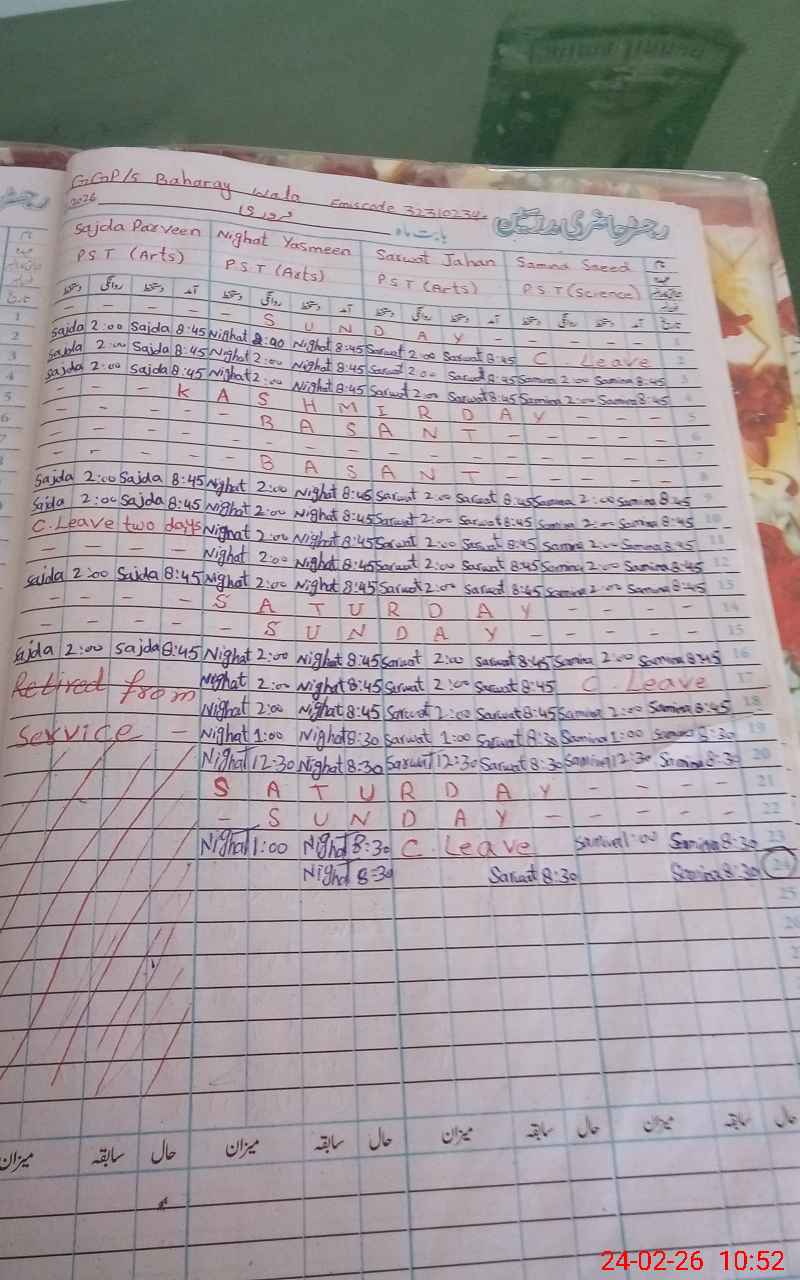 G.G.P/S Baharay wala Emiscode 32310234
2026 فروری بابت ماہ رجسٹر حاضری مدرسین
Sajda Parveen Nighat Yasmeen Sarwat Jahan Samina Saeed
P.S.T (Arts) P.S.T (Arts) P.S.T (Arts) P.S.T (Science)
دستخط روانگی دستخط آمد دستخط روانگی دستخط آمد دستخط روانگی دستخط آمد دستخط روانگی دستخط آمد تاریخ
- - - - - S U N D A Y - - - - - 1
Sajda 2:00 Sajda 8:45 Nighat 2:00 Nighat 8:45 Sarwat 2:00 Sarwat 8:45 C Leave 2
Sajda 2:00 Sajda 8:45 Nighat 2:00 Nighat 8:45 Sarwat 2:00 Sarwat 8:45 Samina 2:00 Samina 8:45 3
Sajda 2:00 Sajda 8:45 Nighat 2:00 Nighat 8:45 Sarwat 2:00 Sarwat 8:45 Samina 2:00 Samina 8:45 4
- - - K A S H M I R D A Y - - - 5
- - - - - B A S A N T - - - - - 6
- - - - - - - - - - - - - - - - 7
- - - - - B A S A N T - - - - - 8
Sajda 2:00 Sajda 8:45 Nighat 2:00 Nighat 8:45 Sarwat 2:00 Sarwat 8:45 Samina 2:00 Samina 8:45 9
Sajda 2:00 Sajda 8:45 Nighat 2:00 Nighat 8:45 Sarwat 2:00 Sarwat 8:45 Samina 2:00 Samina 8:45 10
C. Leave two days Nighat 2:00 Nighat 8:45 Sarwat 2:00 Sarwat 8:45 Samina 2:00 Samina 8:45 11
- - - - Nighat 2:00 Nighat 8:45 Sarwat 2:00 Sarwat 8:45 Samina 2:00 Samina 8:45 12
Sajda 2:00 Sajda 8:45 Nighat 2:00 Nighat 8:45 Sarwat 2:00 Sarwat 8:45 Samina 2:00 Samina 8:45 13
- - - - S A T U R D A Y - - - - 14
- - - - - S U N D A Y - - - - - 15
Sajda 2:00 Sajda 8:45 Nighat 2:00 Nighat 8:45 Sarwat 2:00 Sarwat 8:45 Samina 2:00 Samina 8:45 16
Retired from Nighat 2:00 Nighat 8:45 Sarwat 2:00 Sarwat 8:45 C. Leave 17
Nighat 2:00 Nighat 8:45 Sarwat 2:00 Sarwat 8:45 Samina 2:00 Samina 8:45 18
Service - Nighat 1:00 Nighat 8:30 Sarwat 1:00 Sarwat 8:30 Samina 1:00 Samina 8:30 19
Nighat 12:30 Nighat 8:30 Sarwat 12:30 Sarwat 8:30 Samina 12:30 Samina 8:30 20
S A T U R D A Y - - - - 21
- S U N D A Y - - - - - 22
Nighat 1:00 Nighat 8:30 C. Leave Samina 1:00 Samina 8:30 23
Nighat 8:30 Sarwat 8:30 Samina 8:30 24
25
میزان سابقہ حال میزان سابقہ حال میزان سابقہ حال میزان سابقہ حال
24-02-26 10:52